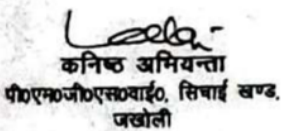 कनिष्ठ अभियन्ता
पी०एम०जी०एस०वाई०, सिंचाई खण्ड,
जखोली